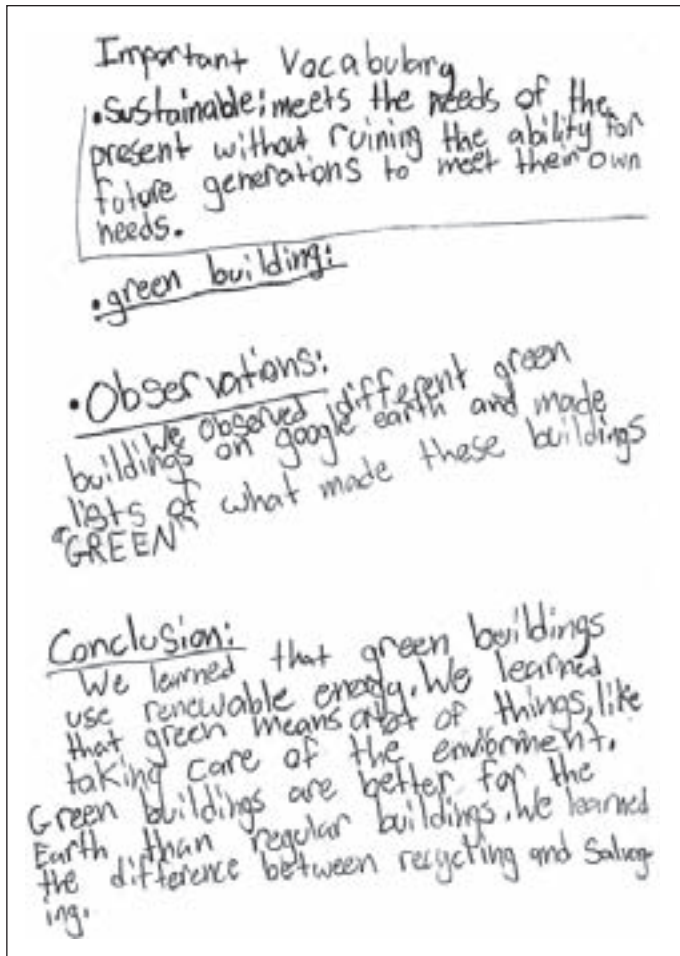 Important Vocabulary
•Sustainable: meets the needs of the
present without ruining the ability for
future generations to meet their own
needs.
•green building:
•Observations:
We observed different green
buildings on google earth and made
lists of what made these buildings
"GREEN"
Conclusion:
We learned that green buildings
use renewable energy. We learned
that green means alot of things, like
taking care of the enviorment.
Green buildings are better for the
Earth than regular buildings. We learned
the difference between recycling and Salvag-
ing.